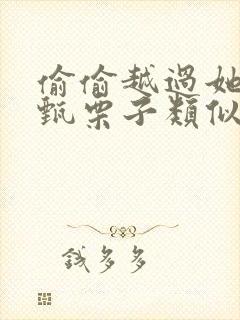 偷偷越過她
甄栗子類似
錢多多